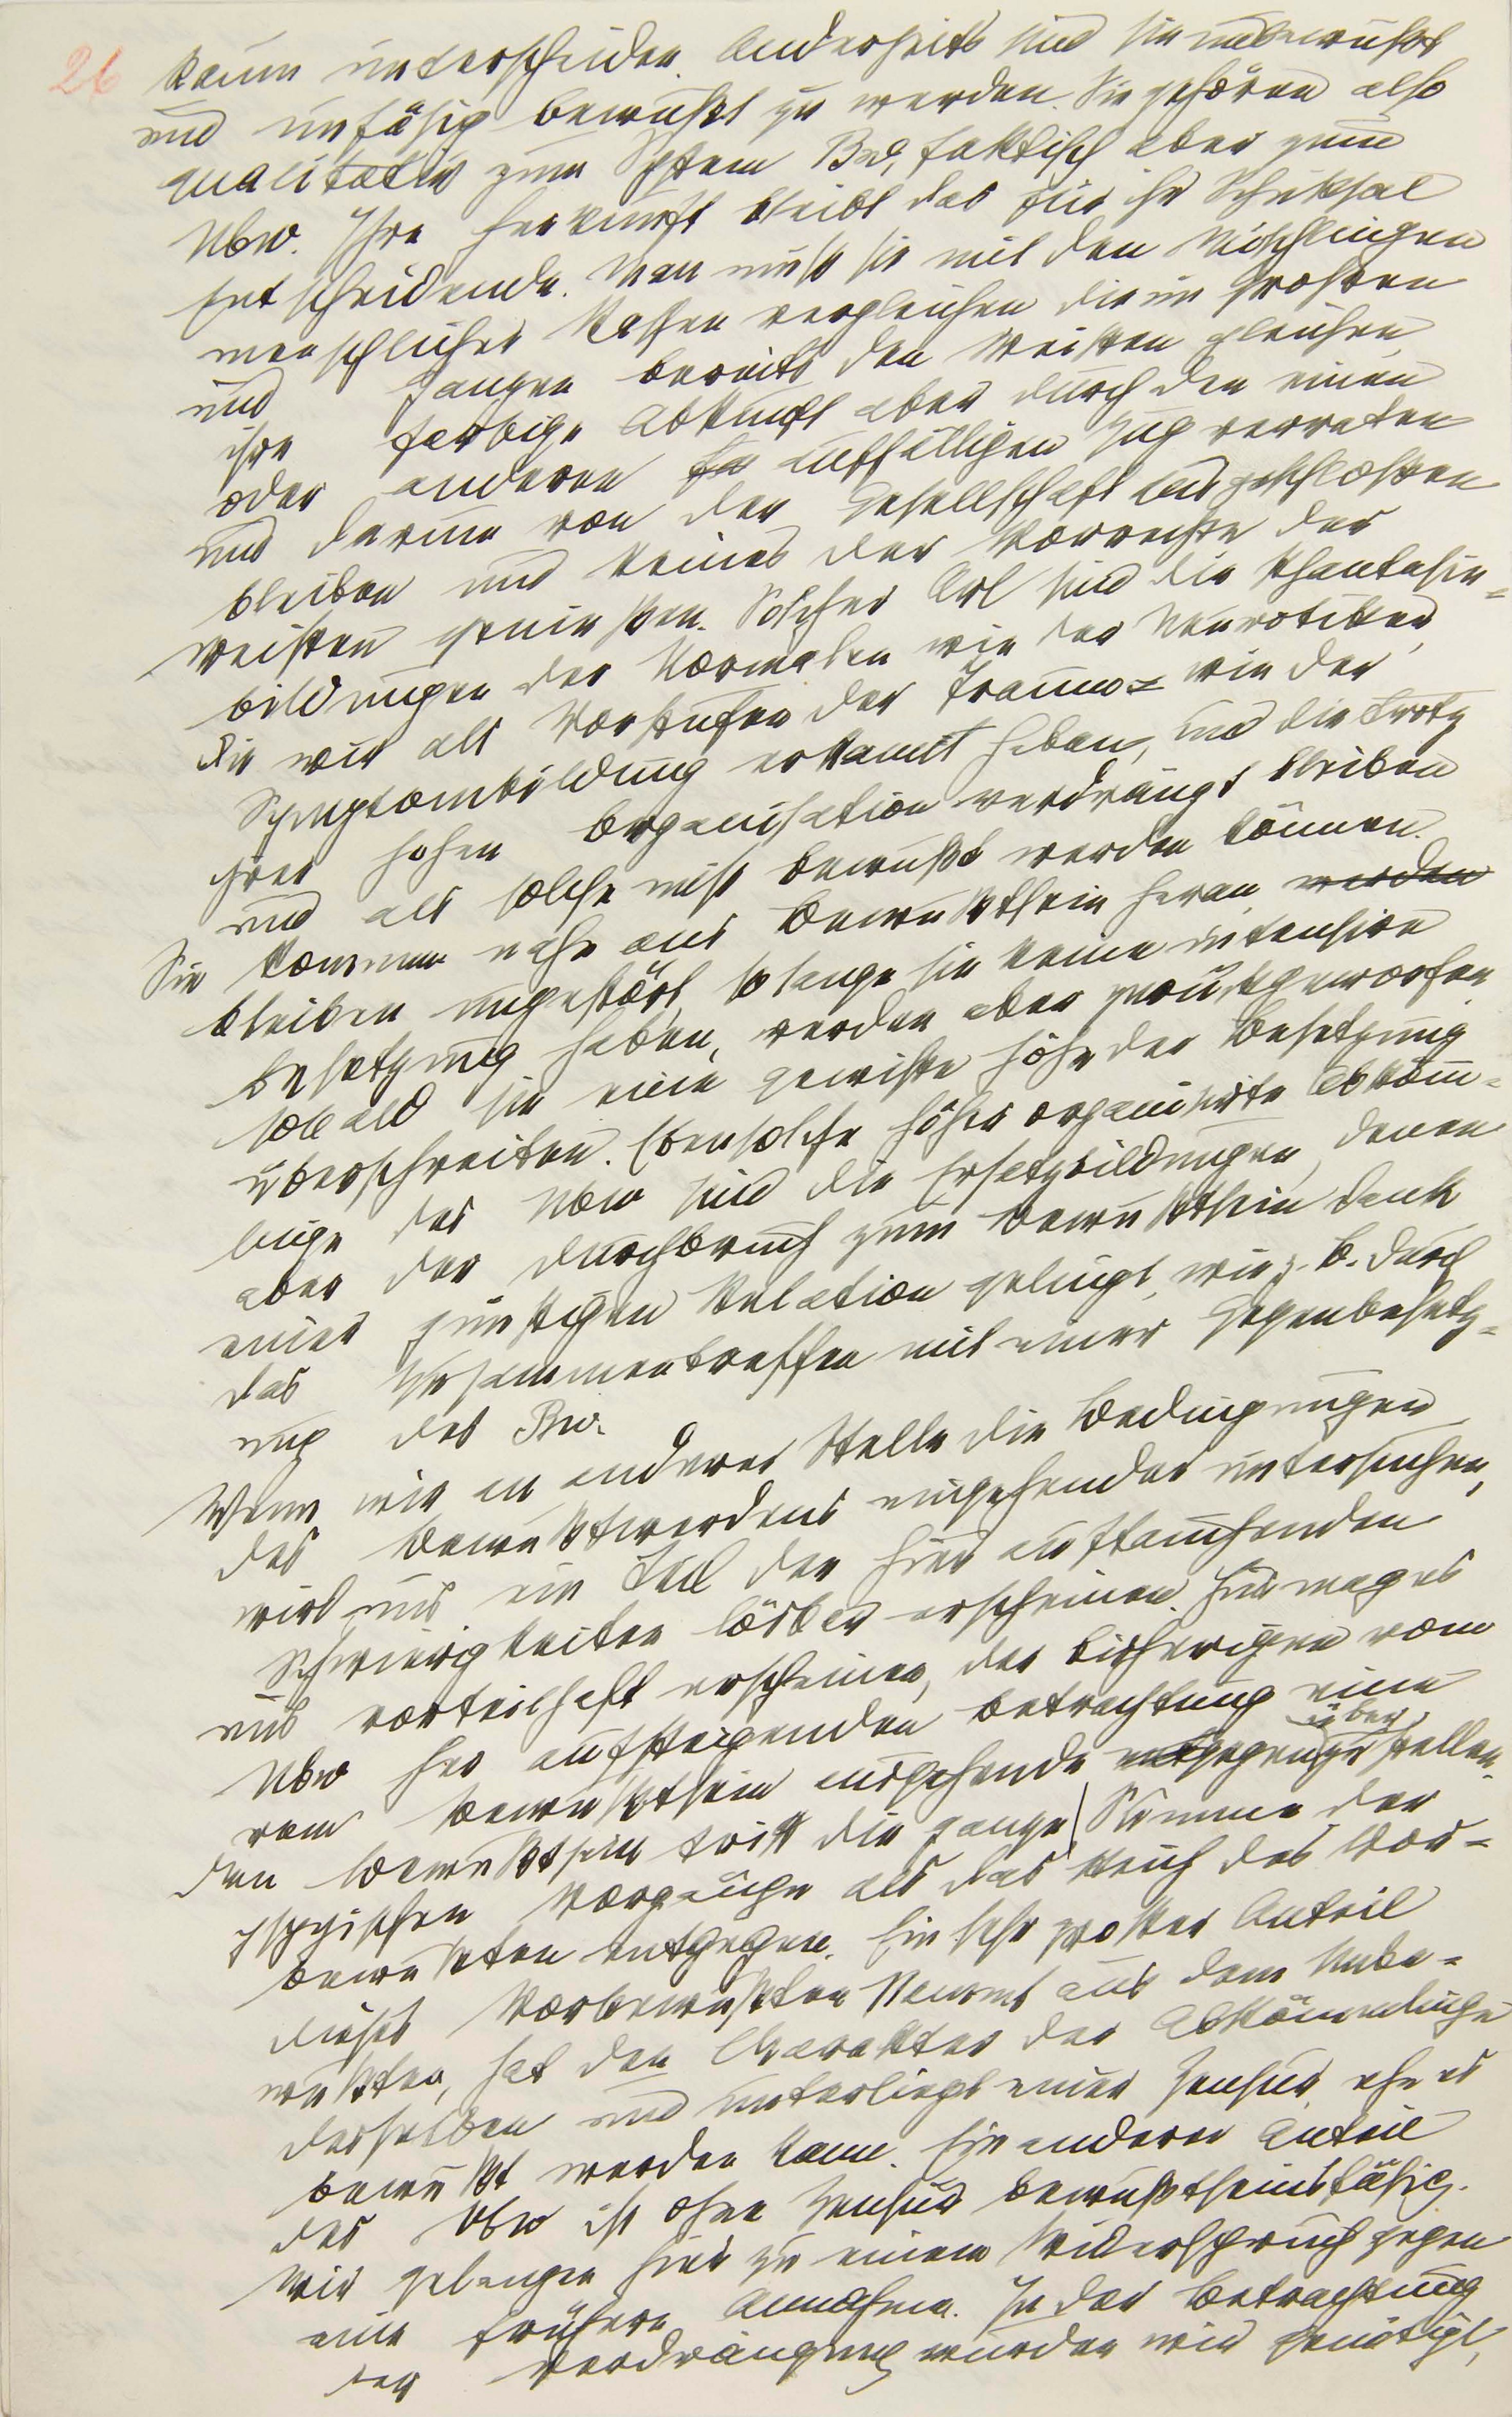 26 kaum unterscheiden. Anderseits sind sie unbewußt
und unfähig bewußt zu werden. Sie gehören also
qualitativ zum System Bw, faktisch aber zum
Ubw. Ihre Herkunft bleibt das für ihr Schicksal
Entscheidende. Man muß sie mit den Mischlingen
menschlicher Rassen vergleichen die im Großen
und Ganzen bereits den Weißen gleichen,
ihre farbige Abkunft aber durch den einen
oder anderen auffälligen Zug verraten
und darum von der Gesellschaft ausgeschloßen
bleiben und keines der Vorrechte der
Weißen genießen. Solcher Art sind die Phantasie=
bildungen der Normalen wie der Neurotiker,
die wir als Vorstufen der Traum= wie der
Symptombildung erkannt haben, und die trotz
ihrer hohen Organisation verdrängt bleiben
und als solche nicht bewußt werden können.
Sie kommen nahe ans Bewußtsein heran, werden
bleiben ungestört, so lange sie keine intensive
Besetzung haben, werden aber zurückgeworfen
sobald sie eine gewiße Höhe der Besetzung
überschreiten. Ebensolche höher organisirte Abkömm=
linge des Ubw sind die Ersatzbildungen, denen
aber der Durchbruch zum Bewußtsein dank
einer günstigen Relation gelingt, wie z. B. durch
das Zusammentreffen mit einer Gegenbesetz=
ung des Bw.
Wenn wir an anderer Stelle die Bedingungen
des Bewußtwerdens eingehender untersuchen,
wird uns ein Teil der hier auftauchenden
Schwierigkeiten lösbar erscheinen. Hier mag es
uns vorteilhaft erscheinen, der bisherigen vom
Ubw her aufsteigenden Betrachtung eine
vom Bewußtsein ausgehende entgegenzustellen.
über
Dem Bewußtsein tritt die ganze Summe der
psychischen Vorgänge als das Reich des Vor=
bewußten entgegen. Ein sehr großer Anteil
dieses Vorbewußten stammt aus dem Unbe=
wußten, hat den Charakter der Abkömmlinge
desselben und unterliegt einer Zensur, ehe er
bewußt werden kann. Ein anderer Anteil
des Vbw ist ohne Zensur bewußtseinsfähig.
Wir gelangen hier zu einem Widerspruch gegen
eine frühere Annahme. In der Betrachtung
der Verdrängung wurden wir genötigt,